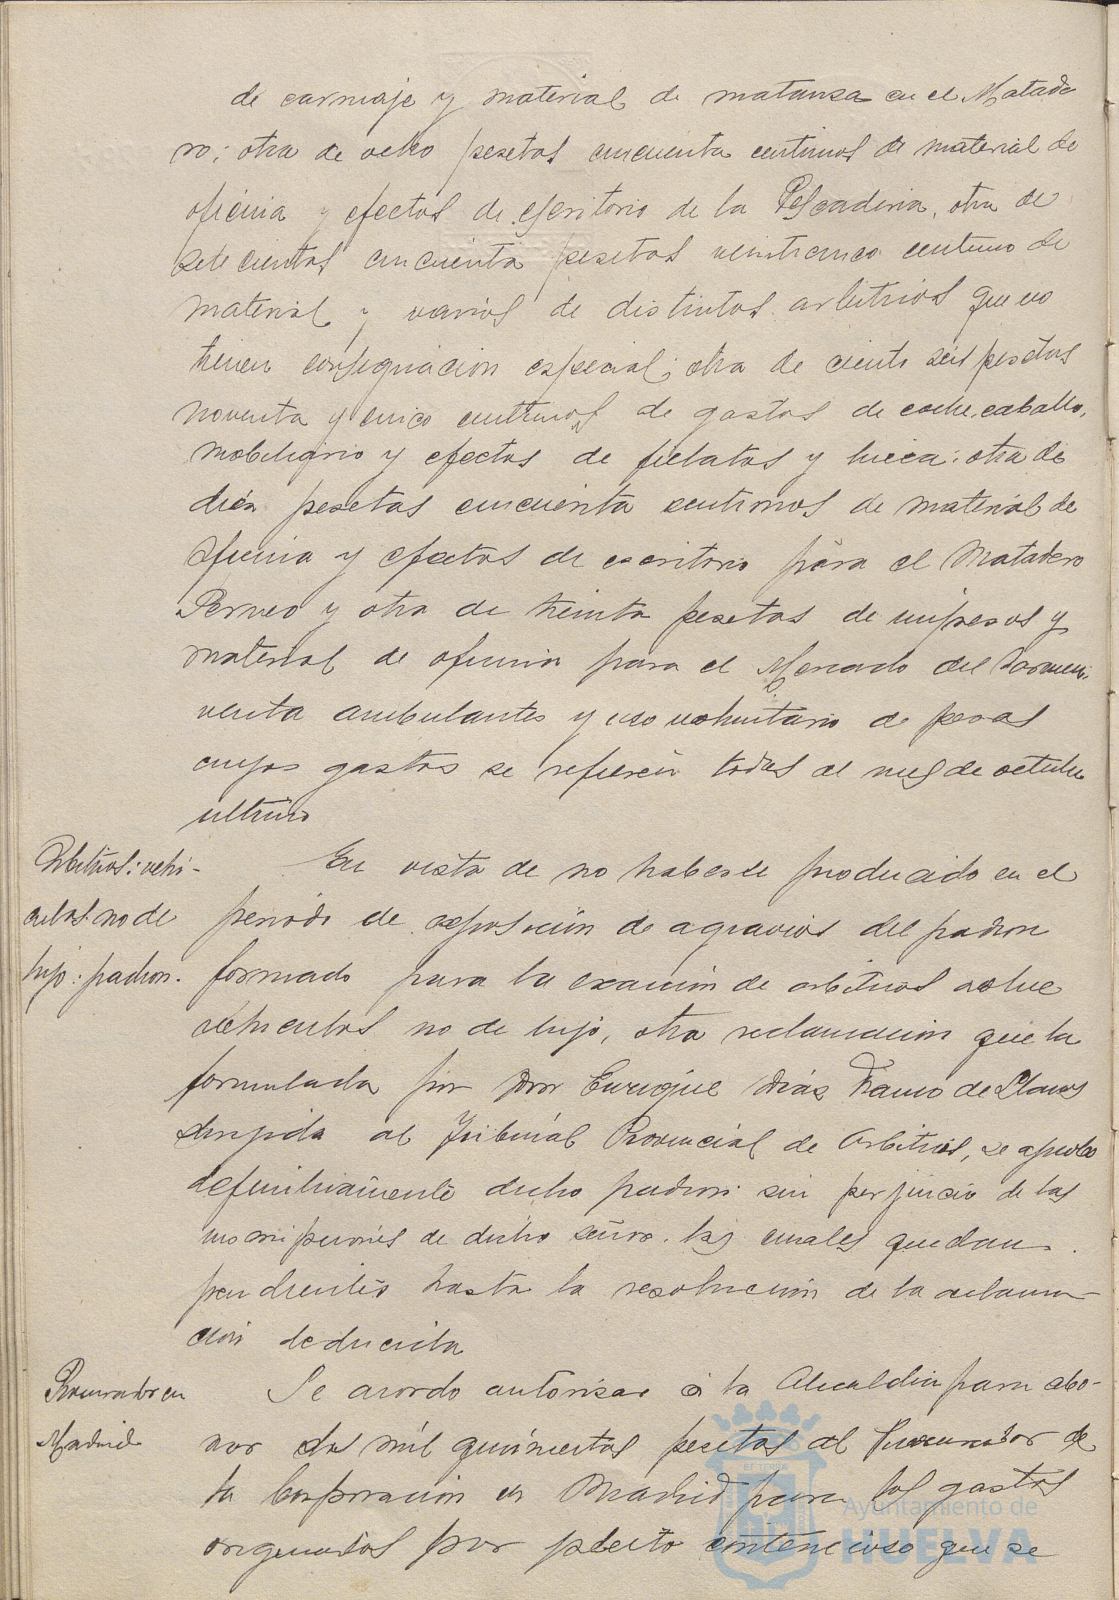 de carruaje y material de matanza en el Matade
ro; otra de ocho pesetas cincuenta centimos de material de
oficina y efectos de escritorio de la Pescaderia, otra de
setecientas cincuenta pesetas veinticinco centimo de
material y varios de distintos arbitrios que no
tienen consignacion especial; otra de ciento seis pesetas
noventa y cinco centimos de gastos de coche, caballo,
mobiliario y efectos de fielatos y linea; otra de
diez pesetas cincuenta centimos de material de
oficina y efectos de escritorio para el Matadero
Perneo y otra de treinta pesetas de impresos y
material de oficina para el Mercado del Carmen,
venta ambulantes y uso voluntario de pesas
cuyos gastos se refieren todos al mes de octubre
ultimo
Arbitrios: vehi-
culos no de
lujo: padron.
En vista de no haberse producido en el
periodo de exposición de agravios del padron
formado para la exacion de arbitrios sobre
vehiculos no de lujo, otra reclamacion que la
formulada por Don Enrique Diaz Franco de Llanos
dirigida al Tribunal Provincial de Arbitrios, se aprobo
definitivamente dicho padron sin perjuicio de las
inscripciones de dicho señor, las cuales quedan
pendientes hasta la resolucion de la reclama-
cion deducida
Procurador en
Madrid
Se acordo autorizar a la Alcaldia para abo-
nar dos mil quinientas pesetas al Procurador de
la Corporacion en Madrid para los gastos
originados por pleito contencioso que se
Ayuntamiento de
HUELVA